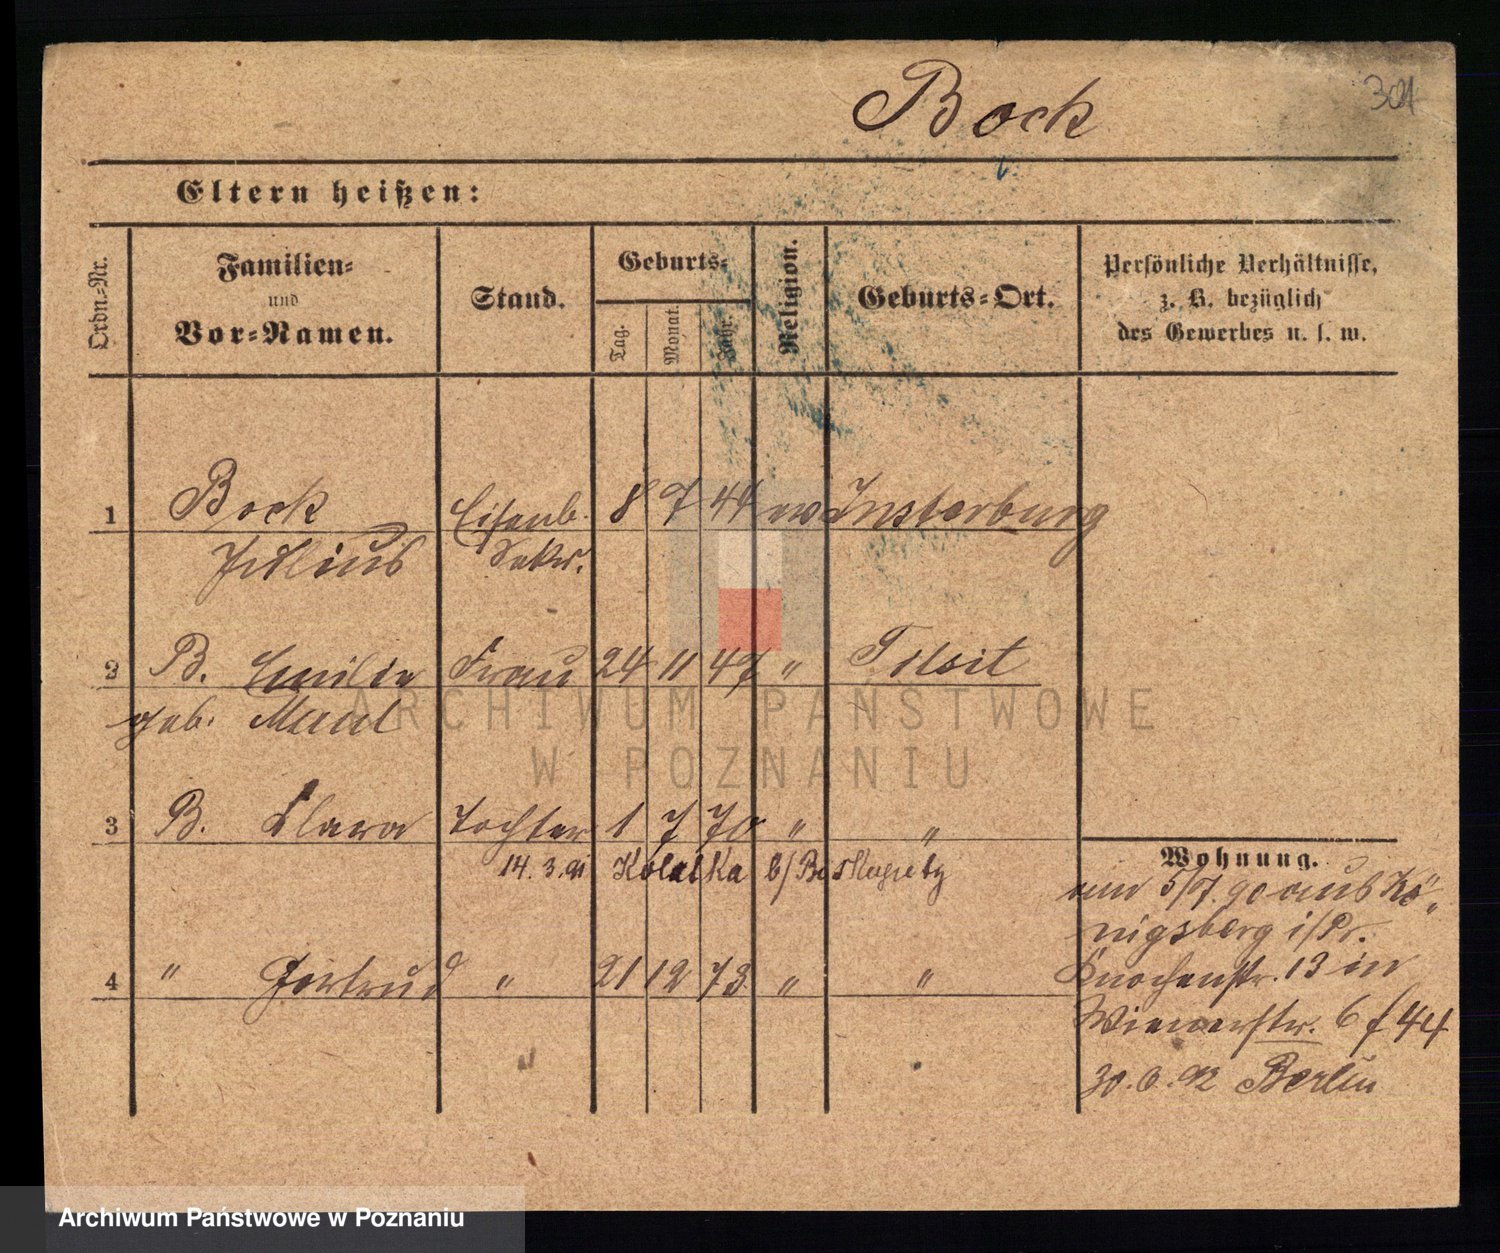 Bock
301
Eltern heißen:
Ordn.-Nr.
Familien-
und
Vor-Namen.
Stand.
Geburts-
Tag.
Monat.
Jahr.
Religion.
Geburts-Ort.
Persönliche Verhältnisse,
z. B. bezüglich
des Gewerbes u. s. w.
1 Bock Eisenb. 8 7 44 ev Insterburg
Julius Sekr.
2 B. Emilie Frau 24 11 47 " Tilsit
geb. Maul
3 B. Clara Tochter 1 7 70 " "
14. 3. 91 Kolatka b/
4 " Gertrud " 21 12 73 " "
Wohnung.
am 5/7. 90 aus Kö-
nigsberg i/Pr.
Knochenstr. 13 in
Wienerstr. 6 f 44
30. 6. 92 Berlin
ARCHIWUM PAŃSTWOWE
W POZNANIU
Archiwum Państwowe w Poznaniu